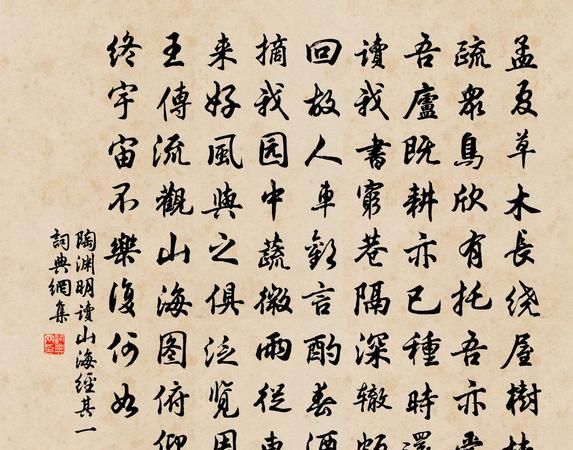 孟夏草木長绕屋樹扶
疏眾鳥欣有托吾亦愛
吾廬既耕亦已種時還
讀我書窮巷隔深辙頗
回故人車歡言酌春酒
摘我园中蔬微雨從東
来好風與之俱泛覽周
王傳流觀山海图俯仰
終宇宙不樂復何如
陶淵明讀山海經其一
詞典網集